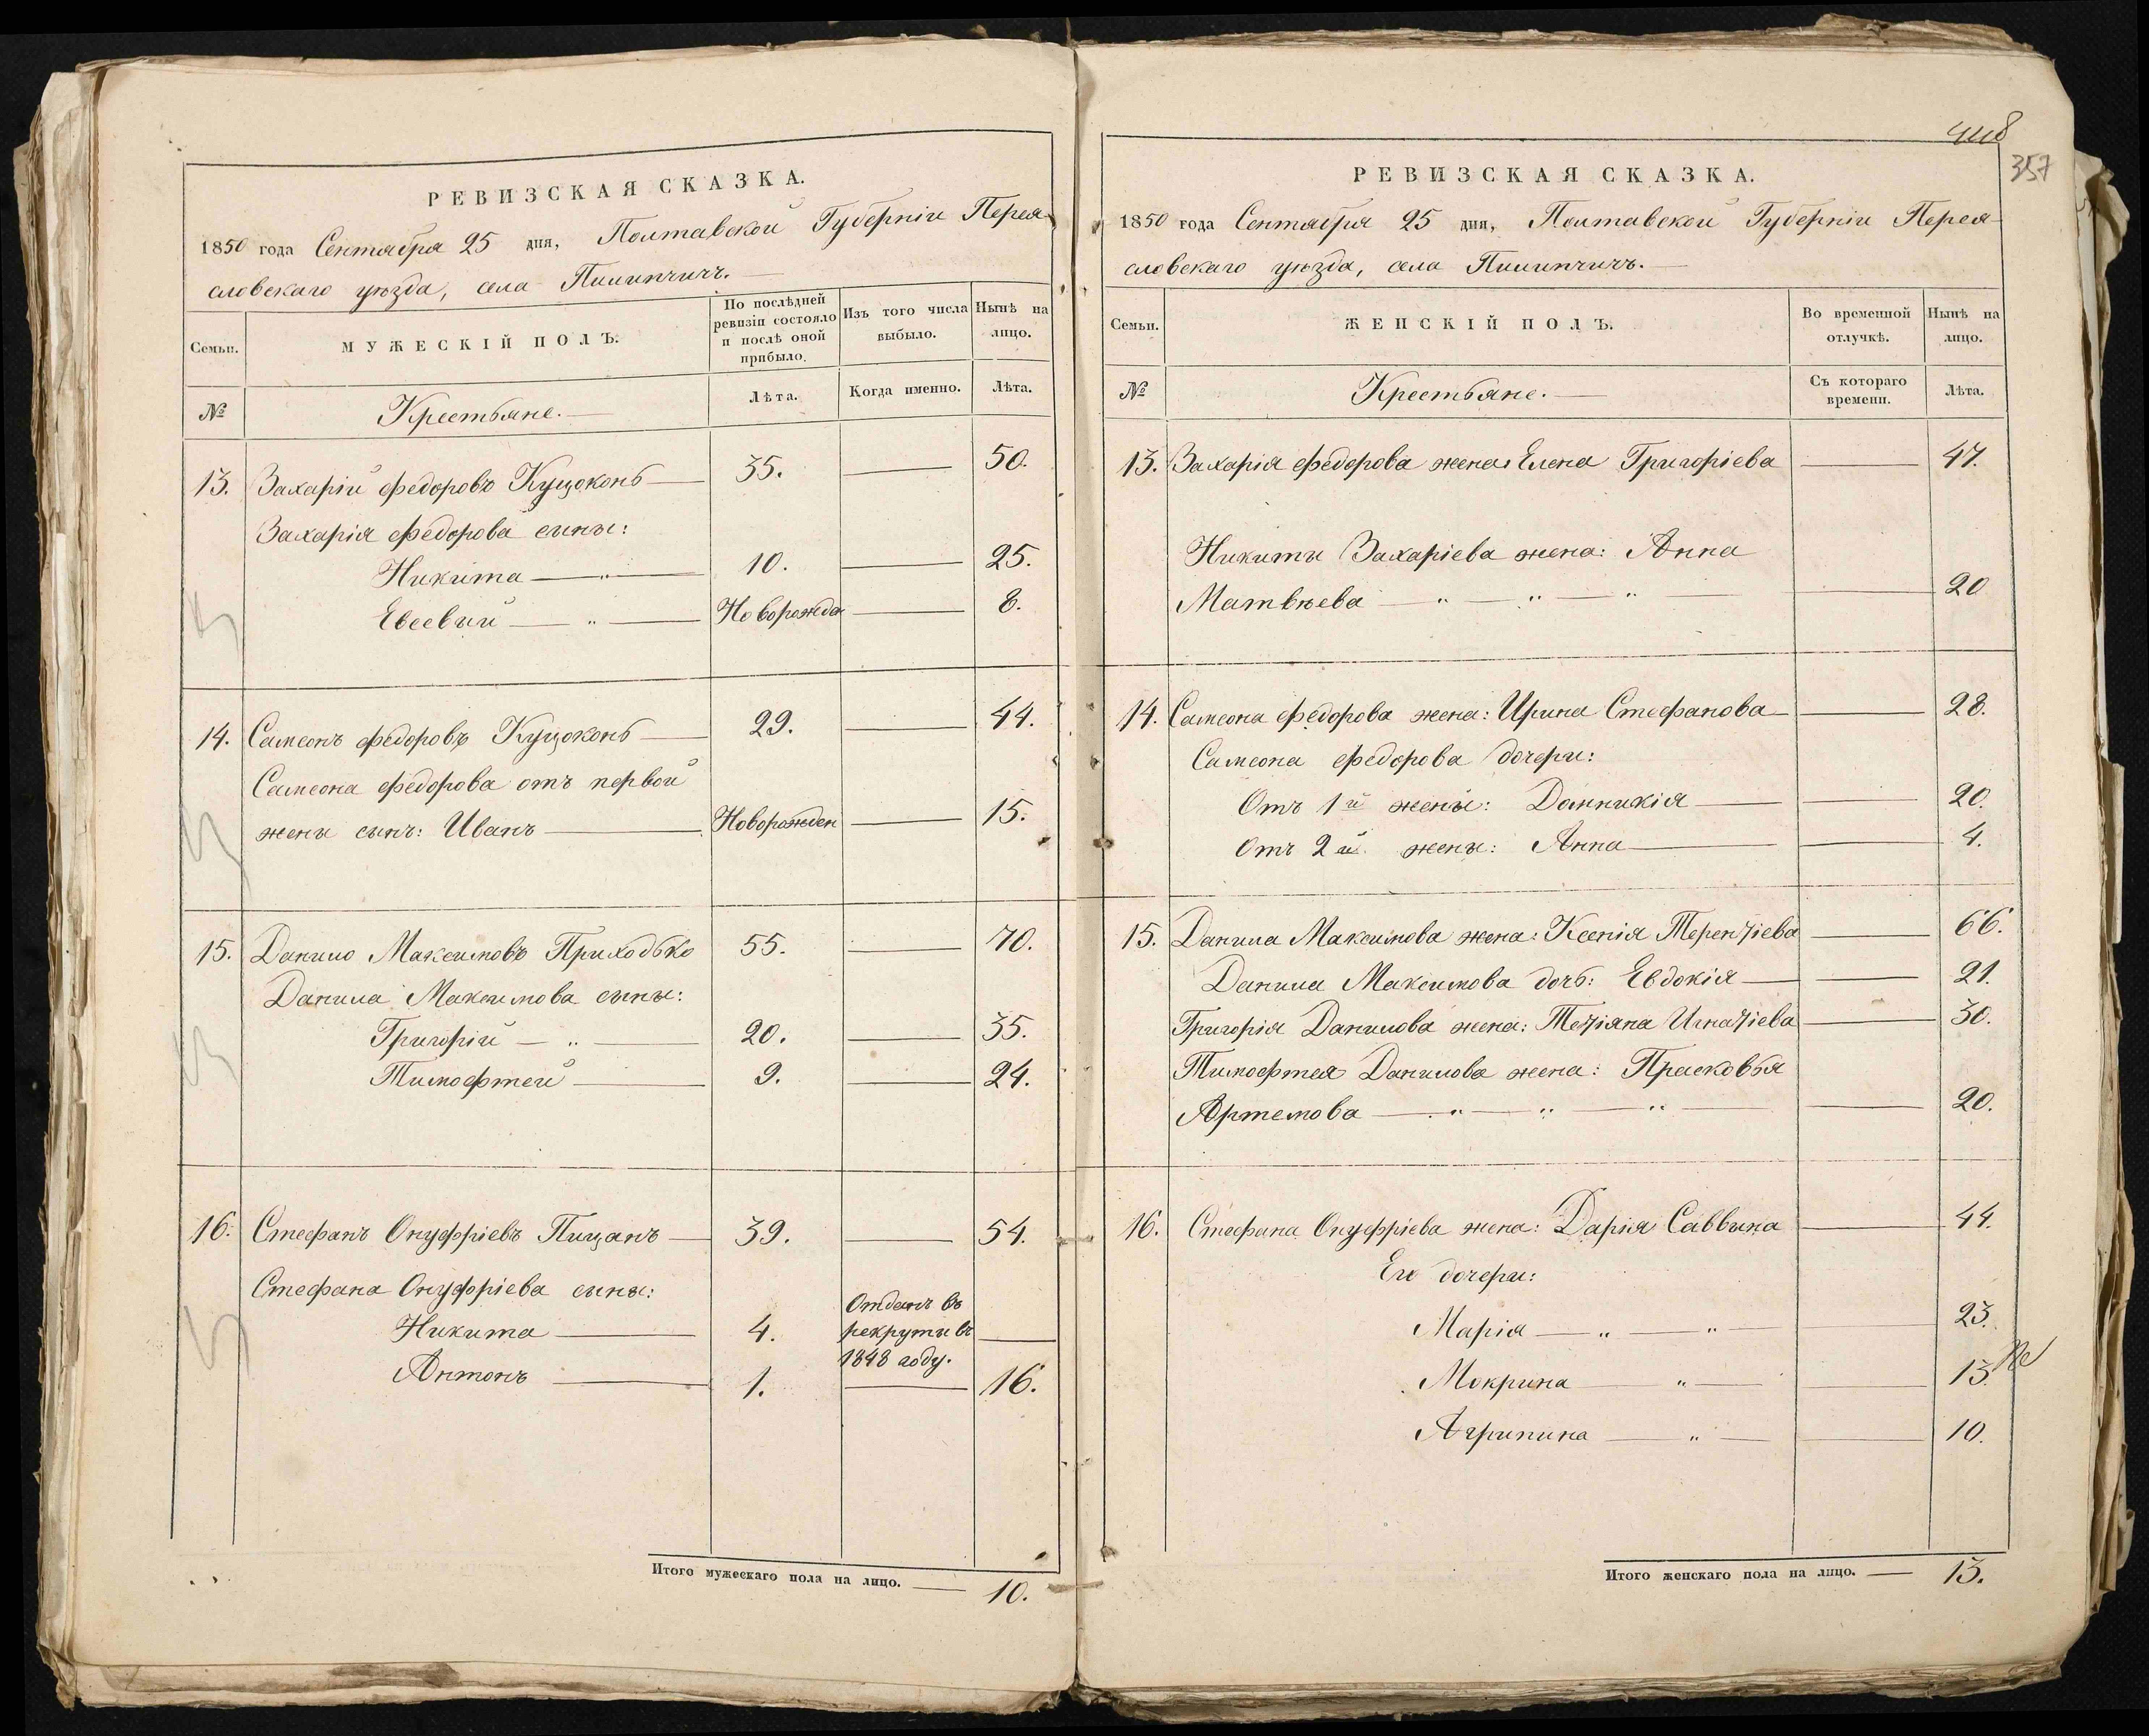 РЕВИЗСКАЯ СКАЗКА.
1850 года Сентября 25 дня, Полтавской Губерніи Перея-
словскаго уѣзда, села Пилипчичъ.
Семьи. МУЖЕСКІЙ ПОЛЪ. По послѣдней ревизіи состояло и послѣ оной прибыло. Изъ того числа выбыло. Нынѣ на лицо.
№ Крестьяне. Лѣта. Когда именно. Лѣта.
13. Захарій Федоровъ Куцоконь 35. 50.
Захарія Федорова сыны:
Никита 10. 25.
Евсевый Новорожден 8.
14. Самсонъ Федоровъ Куцоконь 29. 44.
Самсона Федорова отъ первой
жены сынъ: Иванъ Новорожден 15.
15. Данило Максимовъ Приходько 55. 70.
Данила Максимова сыны:
Григорій 20. 35.
Тимофтей 9. 24.
16. Стефанъ Онуфріевъ Пищанъ 39. 54.
Стефана Онуфріева сыны:
Никита 4. Отданъ въ рекруты въ 1848 году.
Антонъ 1. 16.
Итого мужескаго пола на лицо. 10.
448
357
РЕВИЗСКАЯ СКАЗКА.
1850 года Сентября 25 дня, Полтавской Губерніи Перея-
словскаго уѣзда, села Пилипчичъ.
Семьи. ЖЕНСКІЙ ПОЛЪ. Во временной отлучкѣ. Нынѣ на лицо.
№ Крестьяне. Съ котораго времени. Лѣта.
13. Захарія Федорова жена: Елена Григоріева 47.
Никиты Захаріева жена: Анна
Матвѣева 20
14. Самсона Федорова жена: Ирина Стефанова 28.
Самсона Федорова дочери:
Отъ 1й жены: Домникія 20.
Отъ 2й жены: Анна 4.
15. Данила Максимова жена: Ксенія Терентіева 66.
Данила Максимова дочь: Евдокія 21.
Григорія Данилова жена: Тетіяна Игнатіева 30.
Тимофтея Данилова жена: Прасковья
Артемова 20.
16. Стефана Онуфріева жена: Дарія Саввина 44.
Его дочери:
Марія 23.
Мокрина 13.
Агрипина 10.
Итого женскаго пола на лицо. 13.